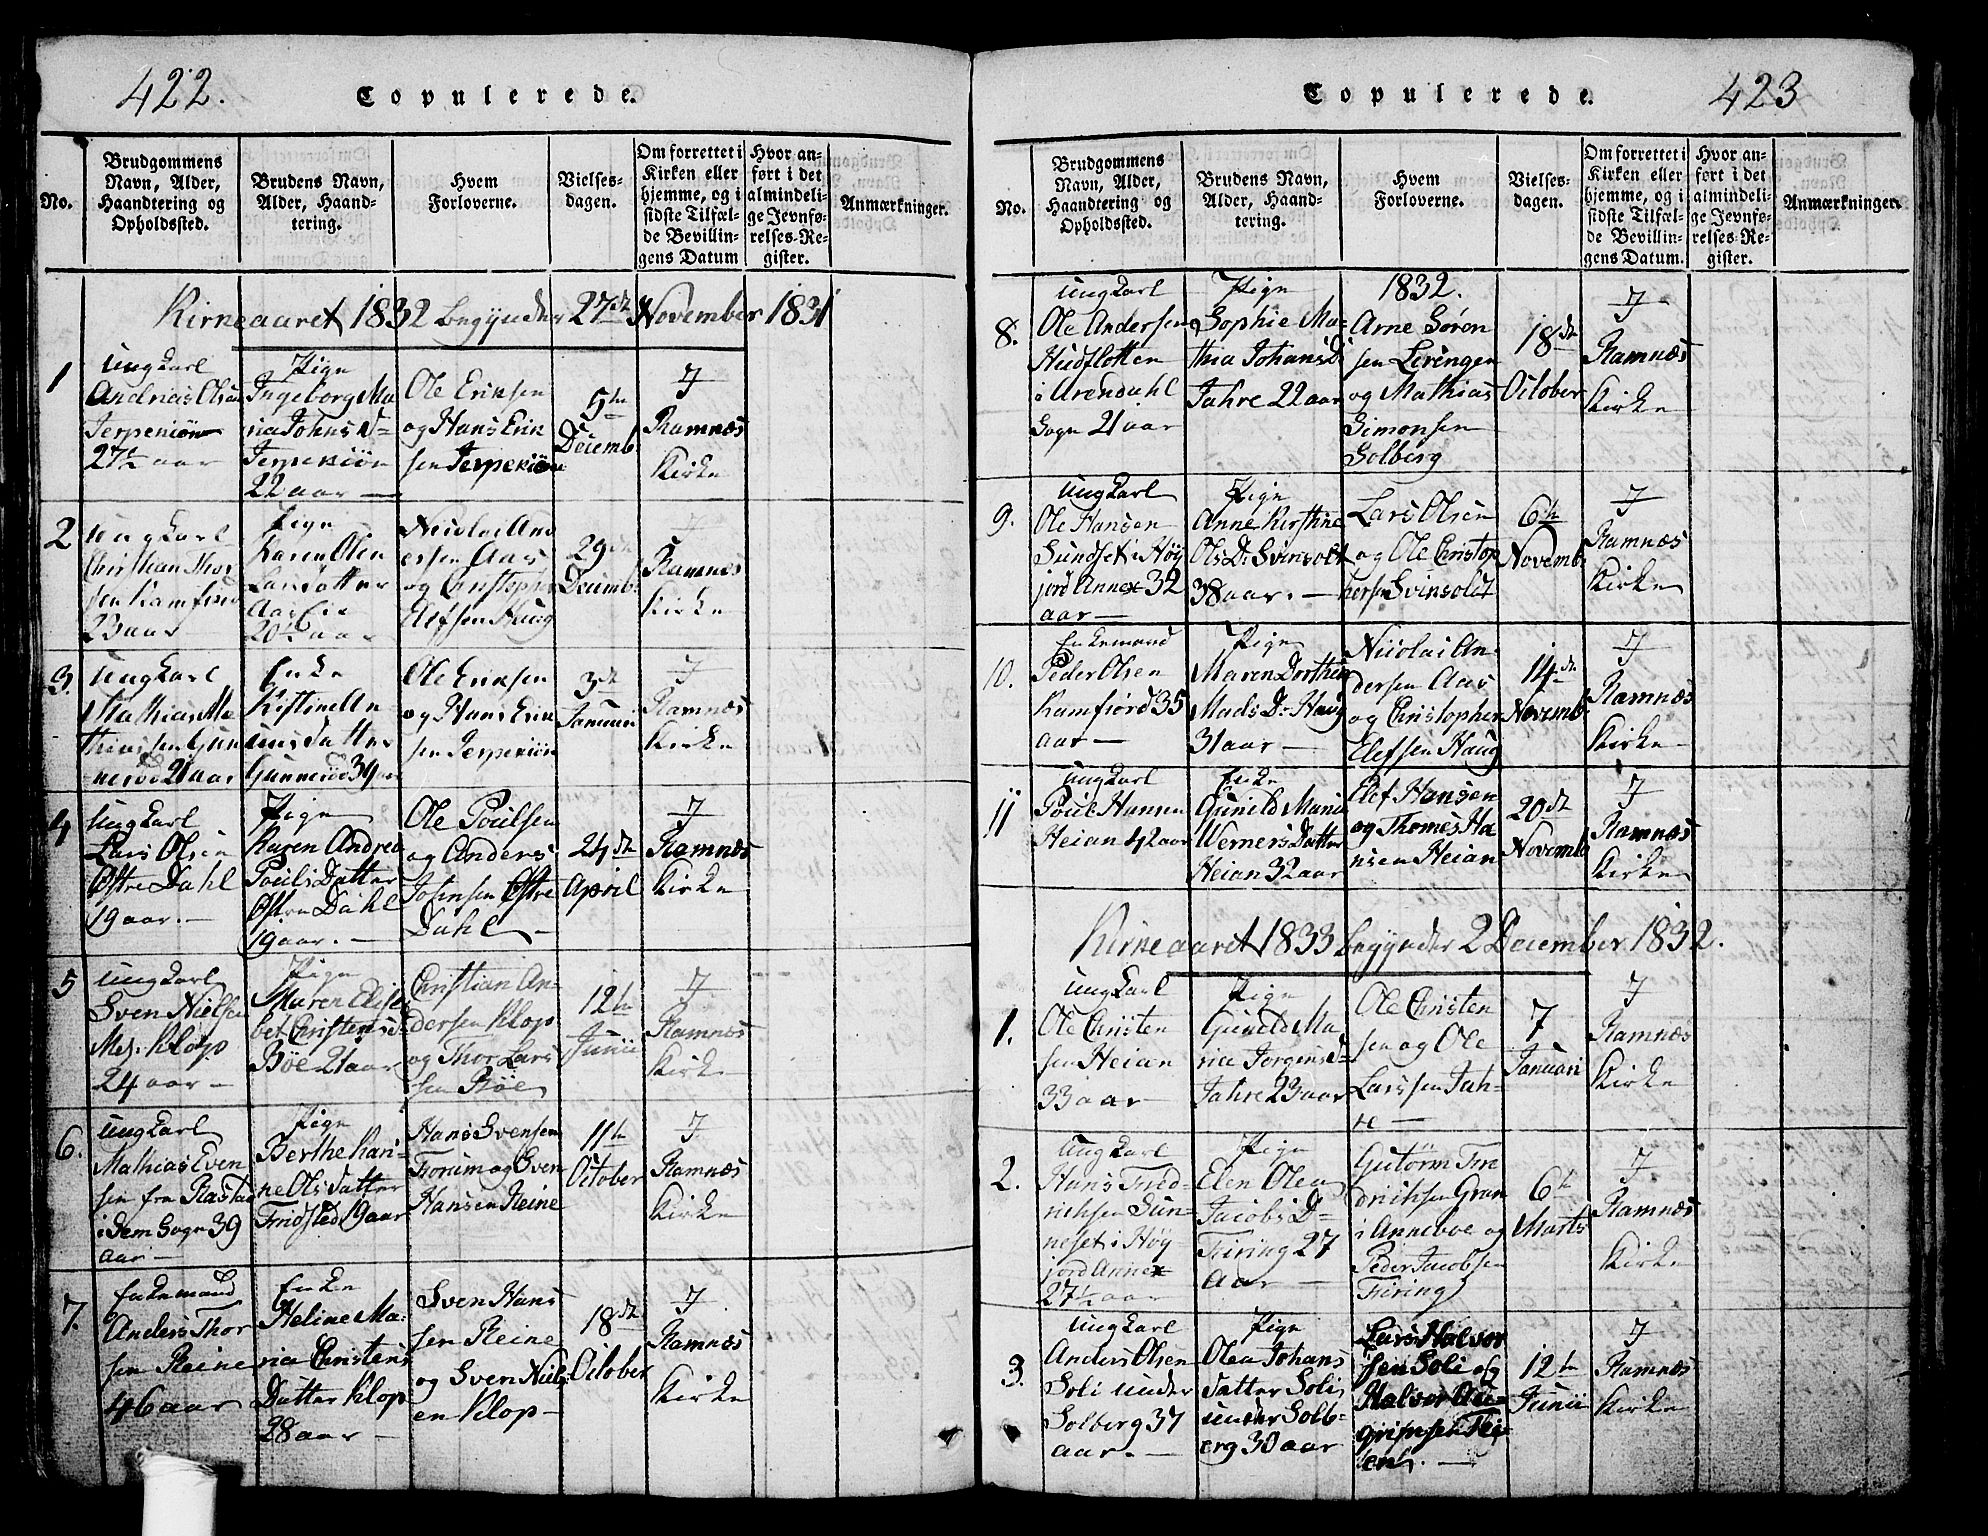 422.
Copulerede.
No.
Brudgommens
Navn, Alder,
Haandtering og
Opholdssted.
Brudens Navn,
Alder, Haand-
tering.
Hvem
Forloverne.
Vielses-
dagen.
Om forrettet i
Kirken eller
hjemme, og i
sidste Tilfæl-
de Bevillin-
gens Datum
Hvor an-
ført i det
almindeli-
ge Jevnfø-
relses-Re-
gister.
Anmærkninger.
Kirkeaaret 1832 begynder 27de November 1831
1
ungkarl
Andrias Olsen
Jerpekiøn
27½ aar
Pige
Ingeborg Ma
ria Johns D=
Jerpekiøn
22 aar
Ole Eriksen
og Hans Erik
sen Jerpekiøn
5te
Decemb
I
Ramnæs
Kirke
2
ungkarl
Christian Thor
sen Kamfiord
23 aar
Pige
Karen Olea
Larsdatter
Aas Eie
20½ aar
Nicolai And
ersen Aas
og Christopher
Elefsen Haug
29de
Decemb.
I
Ramnæs
Kirke
3.
ungkarl
Mathias Ma
thiasen Gun
nerød 21 aar
Enke
Kistine An
unsdatter
Gunnerød 39 aar
Ole Eriksen
og Hans Erik
sen Jerpekiøn
3de
Januari
I
Ramnæs
Kirke
4
ungkarl
Lars Olsen
Østre Dahl
19 aar.
Pige
Karen Andrea
Pouls Datter
Østre Dahl
19 aar.
Ole Poulsen
og Anders
Johnsen Østre
Dahl
24de
April
I
Ramnæs
Kirke
5
ungkarl
Sven Nielsen
Mel. Klop
24 aar
Pige
Maren Elisa
bet Christens D
Bøe 21 aar
Christian An-
dersen Klop
og Thor Lars
sen Bøe
12te
Junii
I
Ramnæs
Kirke
6.
ungkarl
Mathias Even
sen fra Rastad
idem Sogn 39
aar
Pige
Berthe Kari-
ne Olsdatter
Fredsted 19 aar
Hans Svensen
Forum og Sven
Hansen Reine
11te
October
I
Ramnæs
Kirke
7.
Enkemand
Anders Thor
sen Reine
46 aar
Enke
Heline Ma-
ria Christens
Datter Klop
28 aar
Sven Hans
sen Reine
og Sven Niels
en Klop
18de
October
I
Ramnæs
Kirke
423
Copulerede.
No.
Brudgommens
Navn, Alder,
Haandtering og
Opholdssted.
Brudens Navn,
Alder, Haand-
tering.
Hvem
Forloverne.
Vielses-
dagen.
Om forrettet i
Kirken eller
hjemme, og i
sidste Tilfæl-
de Bevillin-
gens Datum.
Hvor an-
ført i det
almindeli-
ge Jevnfø-
relses-Re-
gister.
Anmærkninger.
8.
ungkarl
Ole Andersen
Hudflotten
i Arendahl
Sogn 21 aar
Pige
Sophie Ma-
thia Johans D
Jahre 22 aar
1832.
Arne Søren
sen Lerengen
og Mathias
Simonsen
Solberg
18de
October
I
Ramnæs
Kirke
9.
ungkarl
Ole Hansen
Sundset i Høy
jord Annex 32
aar
Pige
Anne Kirstine
Ols D: Svinsolt
38 aar.
Lars Olsen
og Ole Christop
hersen Svinsolt
6te
Novemb.
I
Ramnæs
Kirke
10.
Enkemand
Peder Olsen
Kamfiord 35
aar
Pige
Maren Dorthea
Mads D: Haug
31 aar
Nicolai An-
dersen Aas
og Christopher
Elefsen Haug
14de
Novemb
I
Ramnæs
Kirke
11
ungkarl
Poul Hansen
Heian 42 aar
Enke
Gunild Maria
Werners Datter
Heian 32 aar
Elef Hansen
og Thomes Ha
nsen Heian
20de
Novemb
I
Ramnæs
Kirke
Kirkeaaret 1833 begynder 2 December 1832.
1.
ungkarl
Ole Christen
sen Heian
33 aar
Pige
Gunild Ma
ria Jorgens D=
Jahre 23 aar
Ole Christen
sen og Ole
Larssen Jah-
re
7
Januari
I
Ramnæs
Kirke
2.
ungkarl
Hans Fred-
richsen Sun-
neset i Høy-
jord Annex
27½ aar
Pige
Elen Olea
Jacobs D=
Firing 27
aar
Gutorm Fre
drichsen Gran
i Anneboe og
Peder Jacobsen
Firing
6te
Marts
I
Ramnæs
Kirke
3.
ungkarl
Anders Olsen
Soli under
Solberg 37
aar.
Pige
Olea Johans
datter Soli
under Solb-
erg 30 aar
Lars Halvor
sen Soli og
Halvor
12te
Junii
I
Ramnæs
Kirke